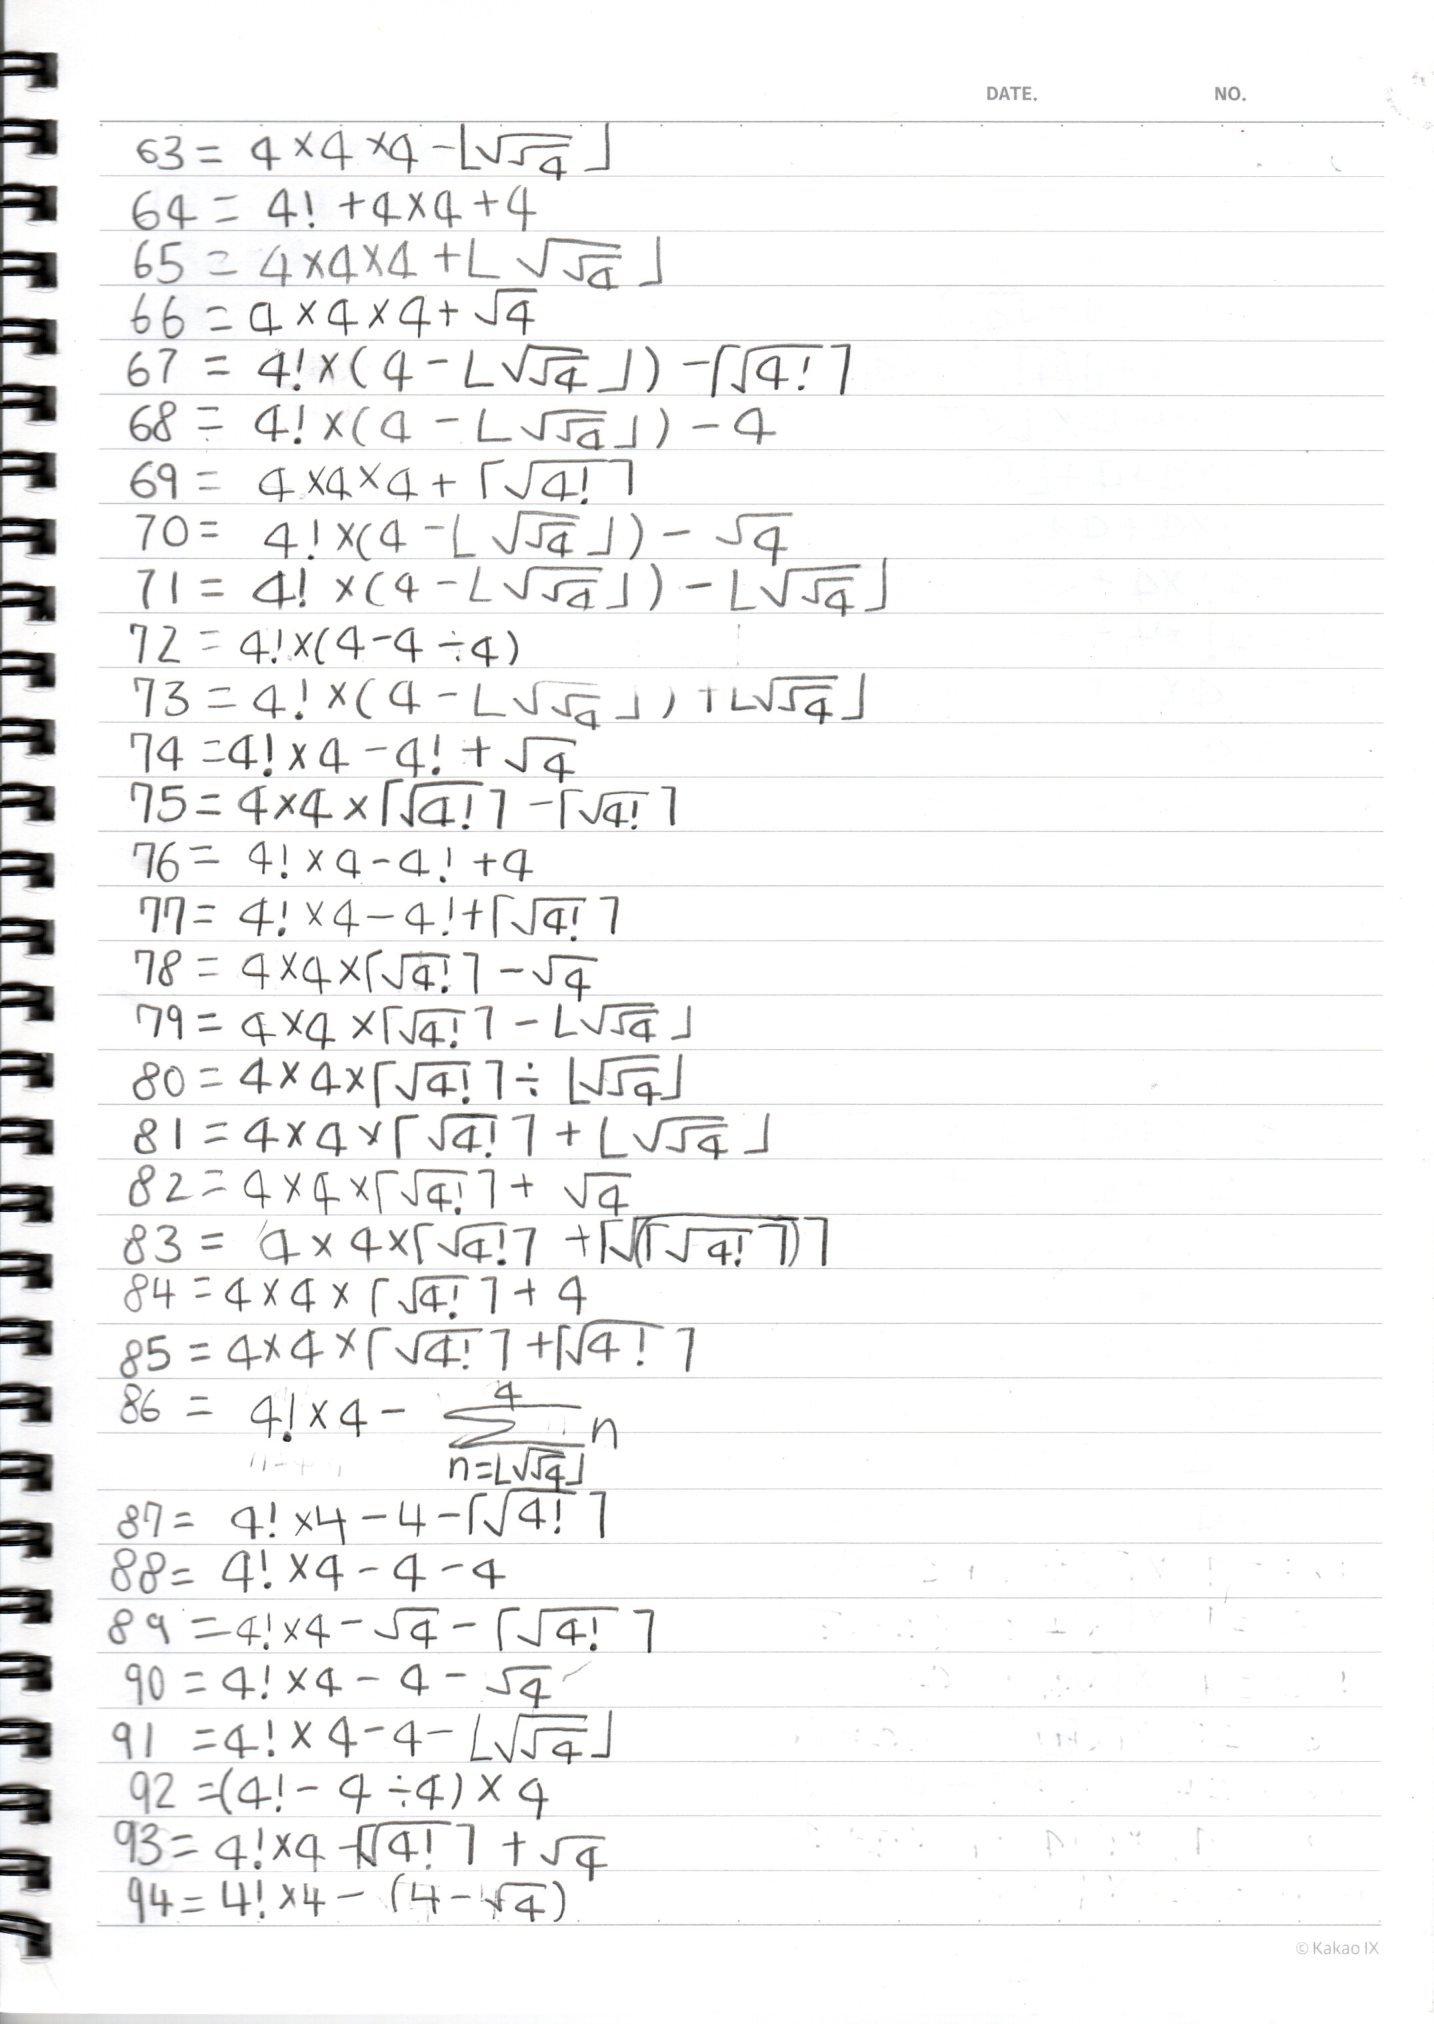 DATE. NO.
63 = 4 × 4 × 4 - ⌊√√4⌋
64 = 4! + 4 × 4 + 4
65 = 4 × 4 × 4 + ⌊√√4⌋
66 = 4 × 4 × 4 + √4
67 = 4! × (4 - ⌊√√4⌋) - ⌈√4!⌉
68 = 4! × (4 - ⌊√√4⌋) - 4
69 = 4 × 4 × 4 + ⌈√4!⌉
70 = 4! × (4 - ⌊√√4⌋) - √4
71 = 4! × (4 - ⌊√√4⌋) - ⌊√√4⌋
72 = 4! × (4 - 4 ÷ 4)
73 = 4! × (4 - ⌊√√4⌋) + ⌊√√4⌋
74 = 4! × 4 - 4! + √4
75 = 4 × 4 × ⌈√4!⌉ - ⌈√4!⌉
76 = 4! × 4 - 4! + 4
77 = 4! × 4 - 4! + ⌈√4!⌉
78 = 4 × 4 × ⌈√4!⌉ - √4
79 = 4 × 4 × ⌈√4!⌉ - ⌊√√4⌋
80 = 4 × 4 × ⌈√4!⌉ ÷ ⌊√√4⌋
81 = 4 × 4 × ⌈√4!⌉ + ⌊√√4⌋
82 = 4 × 4 × ⌈√4!⌉ + √4
83 = 4 × 4 × ⌈√4!⌉ + ⌈√(⌈√4!⌉)⌉
84 = 4 × 4 × ⌈√4!⌉ + 4
85 = 4 × 4 × ⌈√4!⌉ + ⌈√4!⌉
4
86 = 4! × 4 - Σ n
n=⌊√√4⌋
87 = 4! × 4 - 4 - ⌈√4!⌉
88 = 4! × 4 - 4 - 4
89 = 4! × 4 - √4 - ⌈√4!⌉
90 = 4! × 4 - 4 - √4
91 = 4! × 4 - 4 - ⌊√√4⌋
92 = (4! - 4 ÷ 4) × 4
93 = 4! × 4 - ⌈√4!⌉ + √4
94 = 4! × 4 - (4 - √4)
© Kakao IX